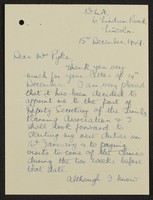 6 Lindum Road,
Lincoln.
15 December, 1948.
Dear Mr Pyke,
Thank you very
much for your letter of 14th
December. I am very pleased
that it has been decided to
appoint me to the post of
Deputy Secretary of the Family
Planning Association & I
shall look forward to
starting my new duties on
6th January & to paying
visits to some of the clinics
during the two weeks before
that date.
Although I know